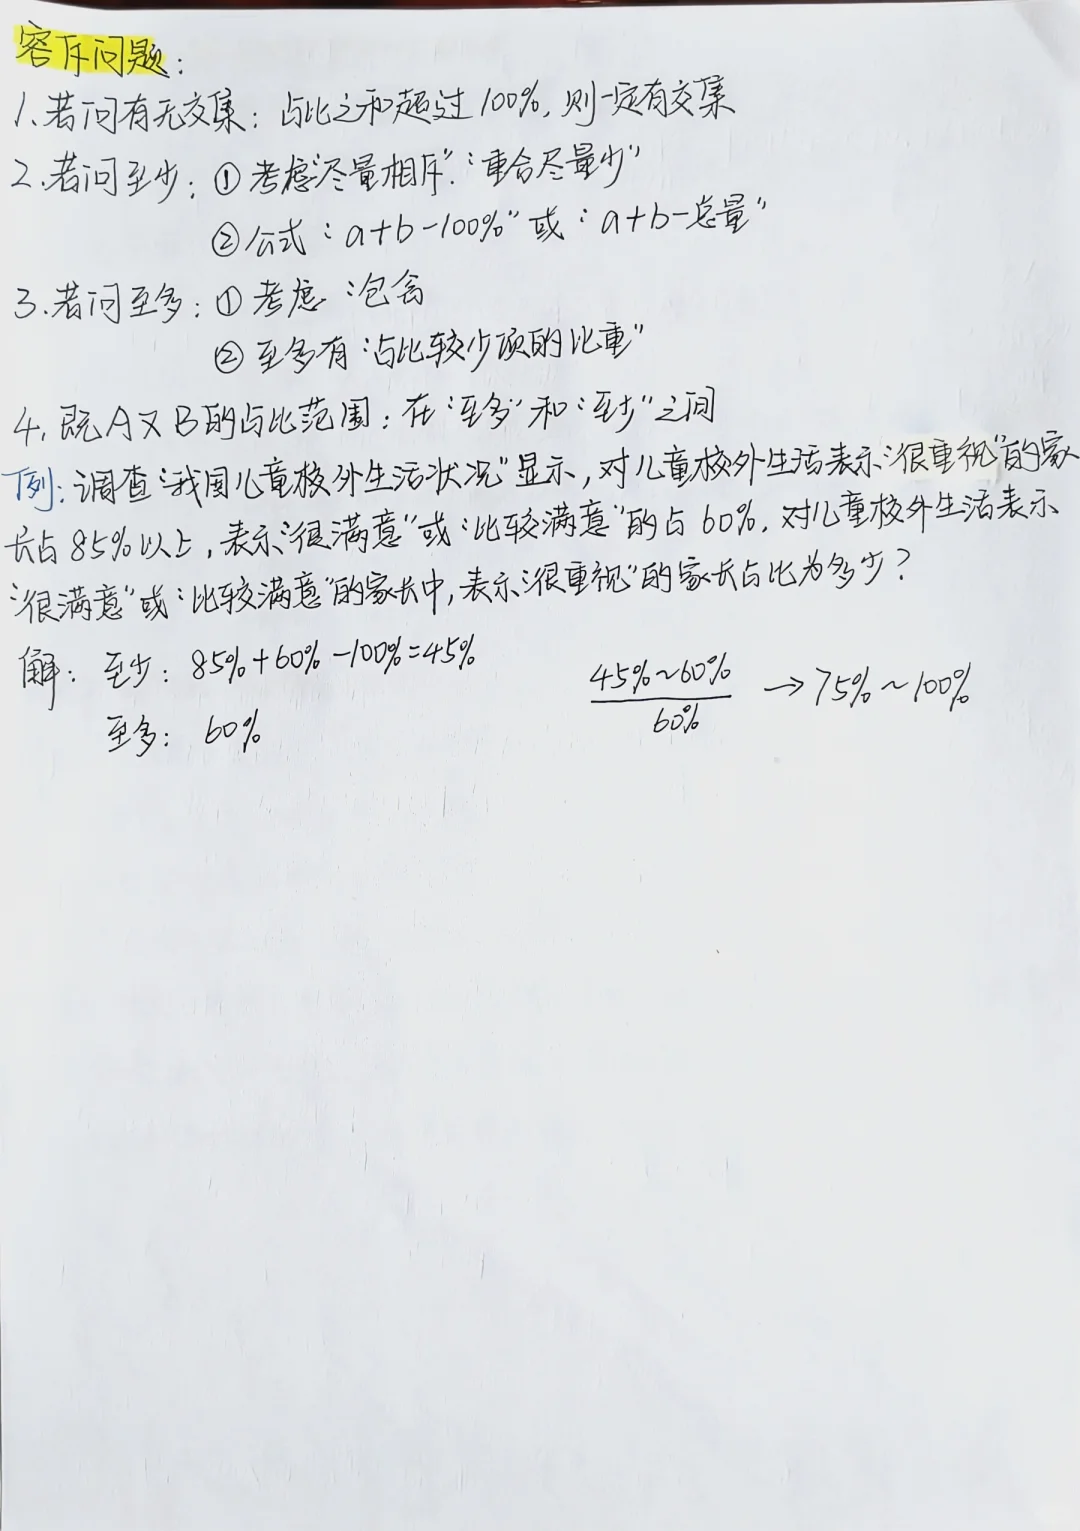 容斥问题:
1、若问有无交集: 占比之和超过100%, 则一定有交集
2、若问至少: ① 考虑“尽量相斥”“重合尽量少”
② 公式“a+b-100%”或“a+b-总量”
3、若问至多: ① 考虑“包含
② 至多有“占比较少项的比重”
4、既A又B的占比范围: 在“至多”和“至少”之间
例: 调查“我国儿童校外生活状况”显示, 对儿童校外生活表示“很重视”的家
长占85%以上, 表示“很满意”或“比较满意”的占60%. 对儿童校外生活表示
“很满意”或“比较满意”的家长中, 表示“很重视”的家长占比为多少?
解: 至少: 85%+60%-100%=45%
至多: 60%
45%~60%
60%
→75%~100%